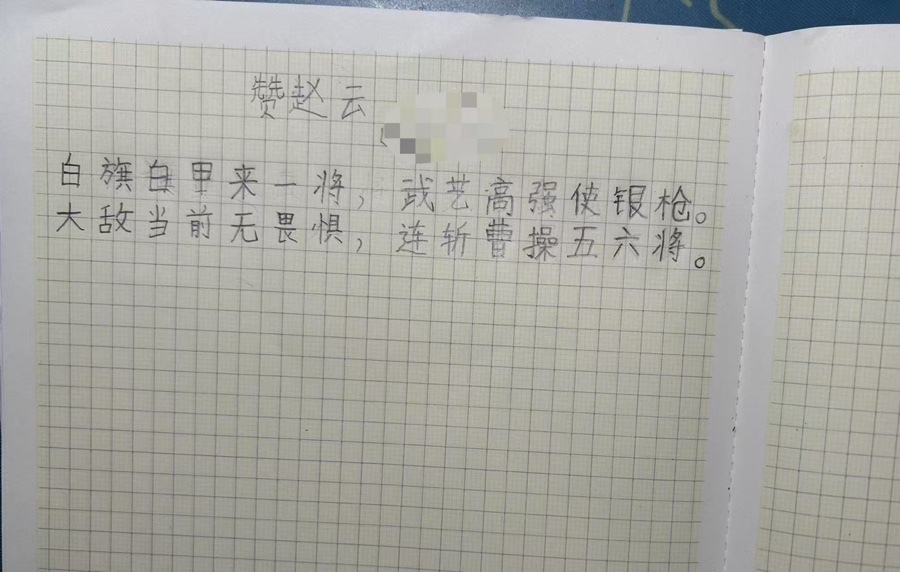 赞赵云
白旗白甲来一将，武艺高强使银枪。
大敌当前无畏惧，连斩曹操五六将。